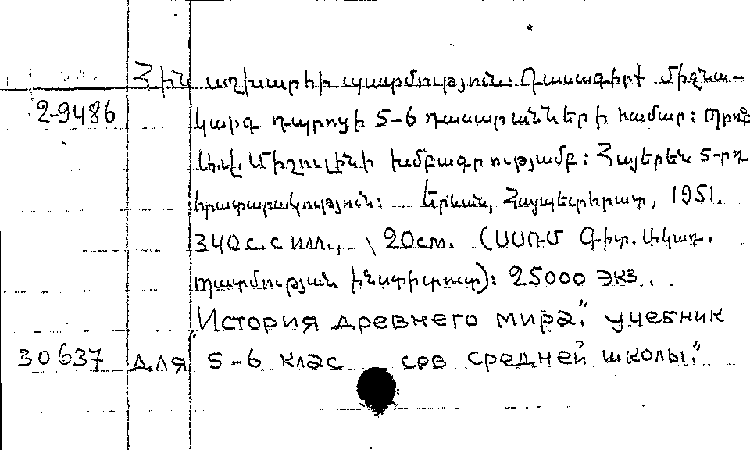 Հին աշխարհի պատմություն: Դասագիրք միջնա-
2-9486 կարգ դպրոցի 5-6 դասարանների համար: Պրոֆ.
Ա.Վ. Միշուլինի խմբագրությամբ: Հայերեն 5-րդ
հրատարակություն: Երևան, Հայպետհրատ, 1951.
340 с. с илл., 20см. (ՍՍՌՄ Գիտ. Ակադ.
Պատմության ինստիտուտ): 25000 экз.
"История древнего мира." учебник
30637 для 5-6 клас сов средней школы."